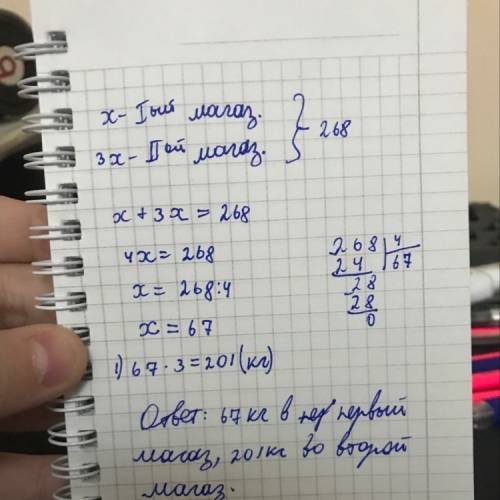 x - Iый магаз.
3x - IIой магаз.
} 268
x + 3x = 268
4x = 268
x = 268:4
x = 67
268 | 4
24 | 67
28
28
0
1) 67 · 3 = 201 (кг)
Ответ: 67 кг в первый
магаз, 201 кг во второй
магаз.